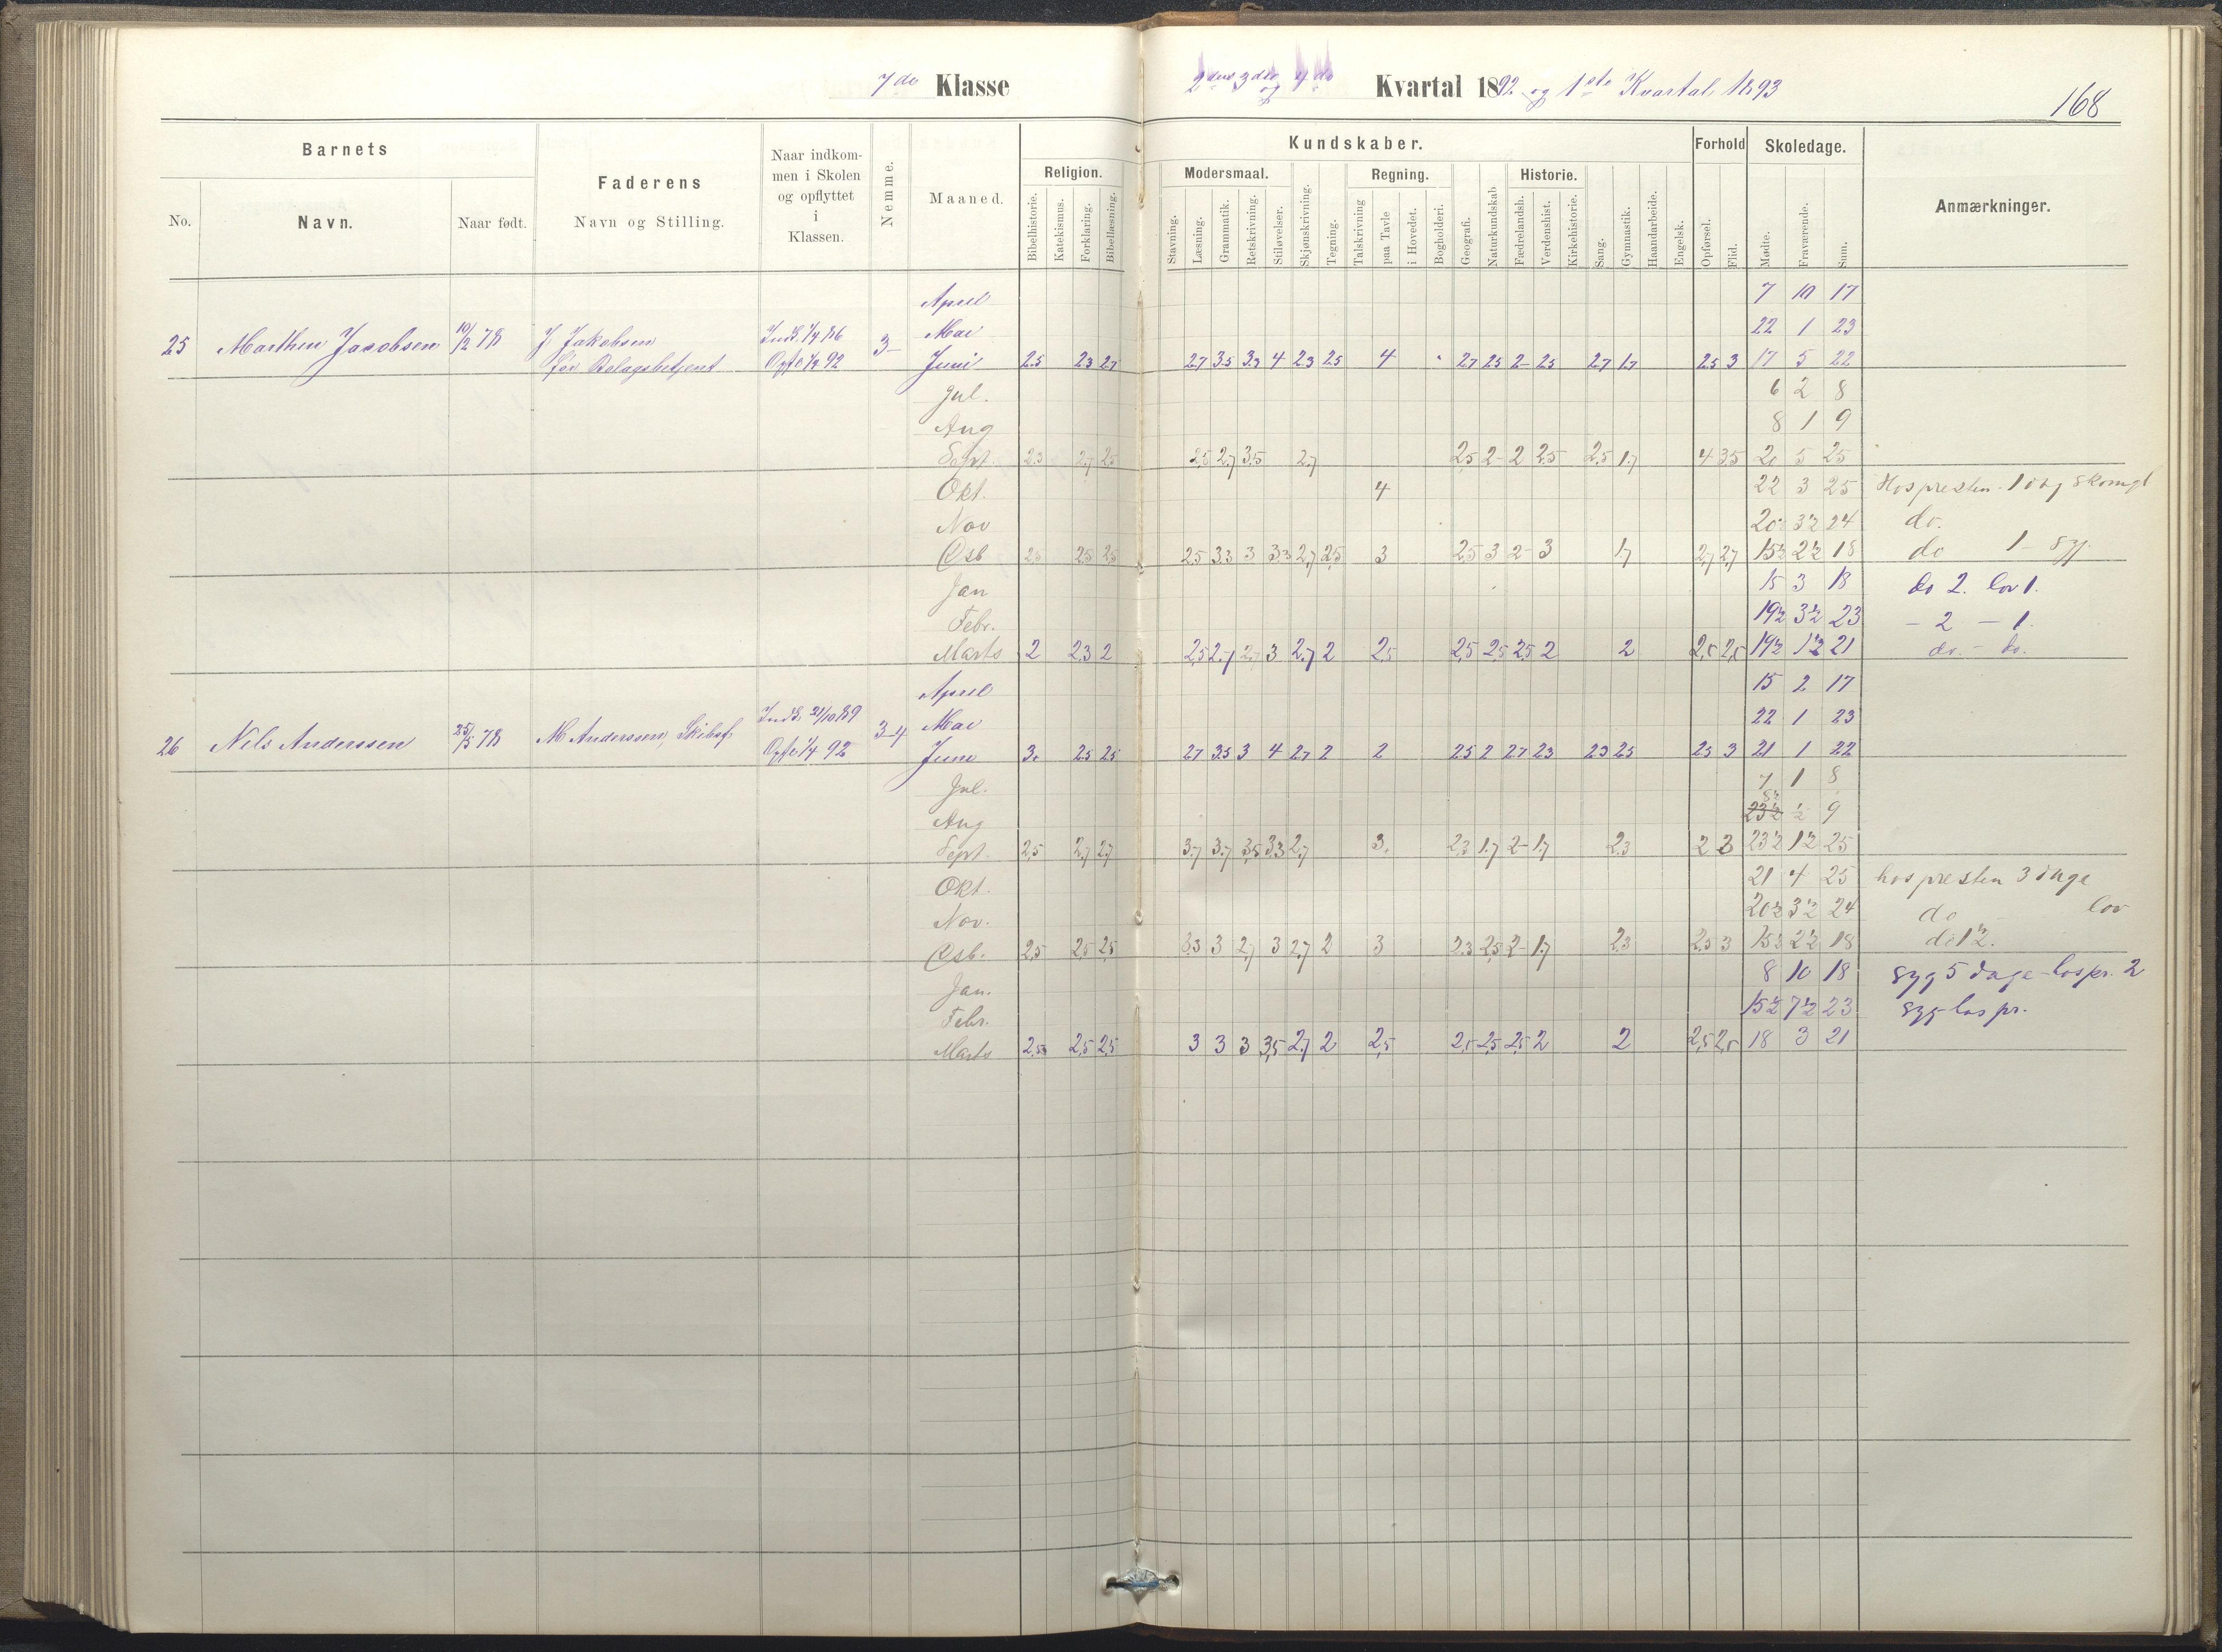 7de Klasse 2det 3die og 4de Kvartal 1892 og 1ste Kvartal 1893
168
Barnets
Faderens
Naar indkommen i Skolen og opflyttet i Klassen.
Nemme.
Maaned.
Kundskaber.
Forhold
Skoledage.
Anmærkninger.
No.
Navn.
Naar født.
Navn og Stilling.
Religion.
Modersmaal.
Regning.
Historie.
Bibelhistorie.
Katekismus.
Forklaring.
Bibellæsning.
Stavning.
Læsning.
Grammatik.
Retskrivning.
Stiløvelser.
Skjønskrivning.
Tegning.
Talskrivning
paa Tavle
i Hovedet.
Bogholderi.
Geografi.
Naturkundskab.
Fædrelandsh.
Verdenshist.
Kirkehistorie.
Sang.
Gymnastik.
Haandarbeide.
Engelsk.
Opførsel.
Flid.
Mødte.
Fraværende.
Sum.
April 7 10 17
25 Marthin Jacobsen 10/2 78 J Jakobsen Inds. 1/4 86 3- Mai 22 1 23
før Opf. 1/4 92 Juni 2.5 2.3 2.7 2.7 3.5 3.3 4 2.3 2.5 4 2.7 2.5 2- 2.5 2.7 1.7 2.5 3 17 5 22
Jul. 6 2 8
Aug 8 1 9
Sept. 2.3 2.7 2.5 2.5 2.7 3.5 2.7 2.5 2- 2 2.5 2.5 1.7 4 3.5 20 5 25
Okt. 4 22 3 25 Hos presten 1
Nov 20 3½ 24 do.
Dsb 2.5 2.5 2.5 2.5 3.3 3 3.3 2.7 2.5 3 2.5 3 2- 3 1.7 2.7 2.7 15½ 2½ 18 do 1 - syg.
Jan 15 3 18 do 2. lov 1.
Febr. 19½ 3½ 23 - 2 - 1.
Marts 2 2.3 2 2.5 2.7 2.7 3 2.7 2 2.5 2.5 2.5 2.5 2 2 2.5 2.5 19½ 1½ 21 do. - do.
April 15 2 17
26 Nils Anderssen 25/5 78 M Anderssen, Skibsf. Inds. 21/10 89 3-4 Mai 22 1 23
Opf. 1/4 92 Juni 3. 2.5 2.5 2.7 3.5 3 4 2.7 2 2 2.5 2 2.7 2.3 2.3 2.5 2.5 3 21 1 22
Jul. 7 1 8
Aug 23½ 8½ ½ 9
Sept. 2.5 2.7 2.7 3.7 3.7 3.5 3.3 2.7 3. 2.3 1.7 2- 1.7 2.3 2 2 23½ 1½ 25
Okt. 21 4 25 hos presten 3 dage
Nov. 20½ 3½ 24 do lov
Dsb. 2.5 2.5 2.5 3.3 3 2.7 3 2.7 2 3 2.3 2.5 2- 1.7 2.3 2.5 3 15½ 2½ 18 do 1½.
Jan. 8 10 18 syg 5 dage - hos pr. 2
Febr. 15½ 7½ 23 syg - hos pr.
Marts 2.5 2.5 2.5 3 3 3 3.5 2.7 2 2.5 2.5 2.5 2.5 2 2 2.5 2.5 18 3 21